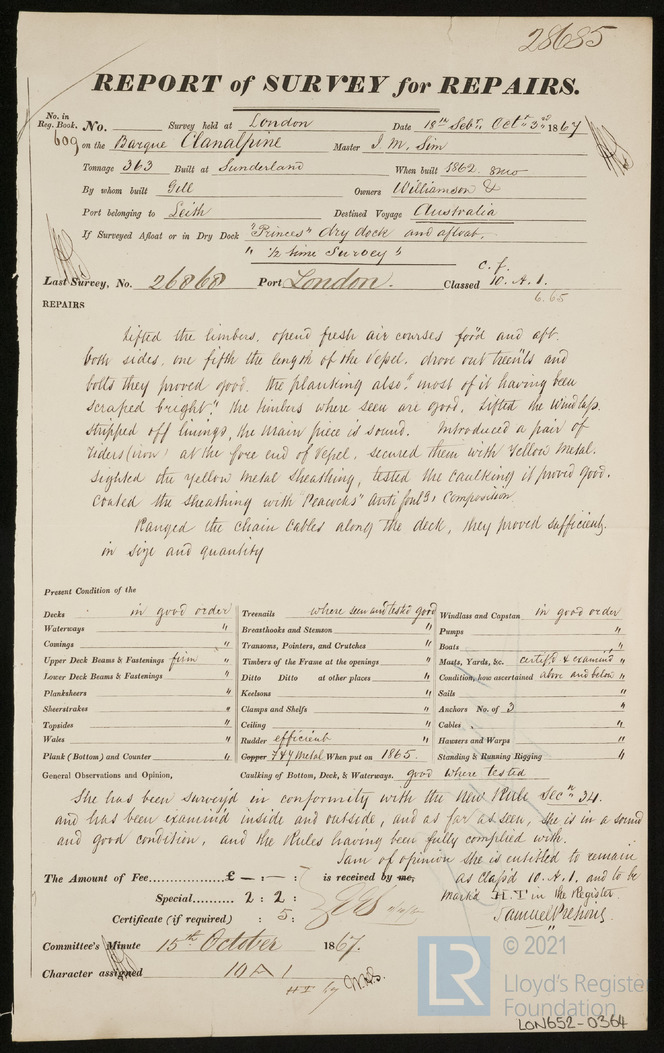 28685
REPORT of SURVEY for REPAIRS.
No. in Reg. Book. No. Survey held at London Date 18th Sebr. Octr 3rd 1867
609 on the Barque Clanalpine Master J. M. Sim
Tonnage 363 Built at Sunderland When built 1862.
By whom built Gill Owners Williamson &
Port belonging to Leith Destined Voyage Australia
If Surveyed Afloat or in Dry Dock "Princes" dry dock and afloat.
" 1/2 time Survey "
c. f.
Last Survey, No. 26868 Port London. Classed 10. A. 1.
6. 65
REPAIRS
Lifted the limbers, opend fresh air courses for'd and aft.
both sides, one fifth the length of the Vessel. drove out treen'ls and
bolts they proved good. the planking also". most of it having been
scraped bright". the timbers where seen are good. Lifted the windlass.
stripped off linings, the main piece is sound. Introduced a pair of
riders (iron) at the fore end of vessel, secured them with Yellow metal.
Sighted the yellow metal sheathing, tested the caulking it proved good.
Coated the sheathing with "Peacocks" Anti foulg. Composition.
Ranged the chain cables along the deck, they proved sufficient,
in size and quantity
Present Condition of the
Decks in good order
Waterways "
Comings "
Upper Deck Beams & Fastenings firm "
Lower Deck Beams & Fastenings "
Planksheers "
Sheerstrakes "
Topsides "
Wales "
Plank (Bottom) and Counter "
Treenails where seen and test'd good
Breasthooks and Stemson "
Transoms, Pointers, and Crutches "
Timbers of the Frame at the openings "
Ditto Ditto at other places "
Keelsons "
Clamps and Shelfs "
Ceiling "
Rudder efficient "
Copper Y Metal When put on 1865.
Windlass and Capstan in good order
Pumps "
Boats "
Masts, Yards, &c. certif'd & examind "
Condition, how ascertained above and below "
Sails "
Anchors No. of 3 "
Cables "
Hawsers and Warps "
Standing & Running Rigging "
General Observations and Opinion, Caulking of Bottom, Deck, & Waterways. good where tested
She has been survey'd in conformity with the new Rule Secn 34.
and has been examind inside and outside, and as far as seen, she is in a sound
and good condition, and the Rules having been fully complied with.
I am of opinion she is entitled to remain
The Amount of Fee............... £ — : — : is received by me, as class'd 10. A. 1. and to be
Special......... 2 : 2 : mark'd H.T in the Register.
Certificate (if required) : 5 :
Samuel
Committee's Minute 15th October 1867.
Character assigned 10 A 1
HT by
LR © 2021
Lloyd's Register
Foundation
LON652-0364